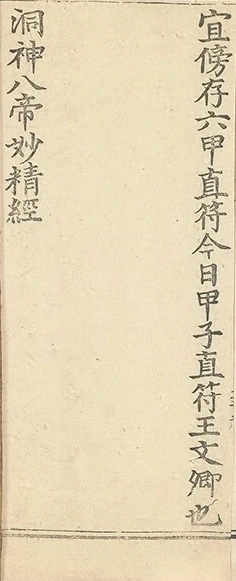 宜傍存六甲直符今日甲子直符王文卿也
洞神八帝妙精經